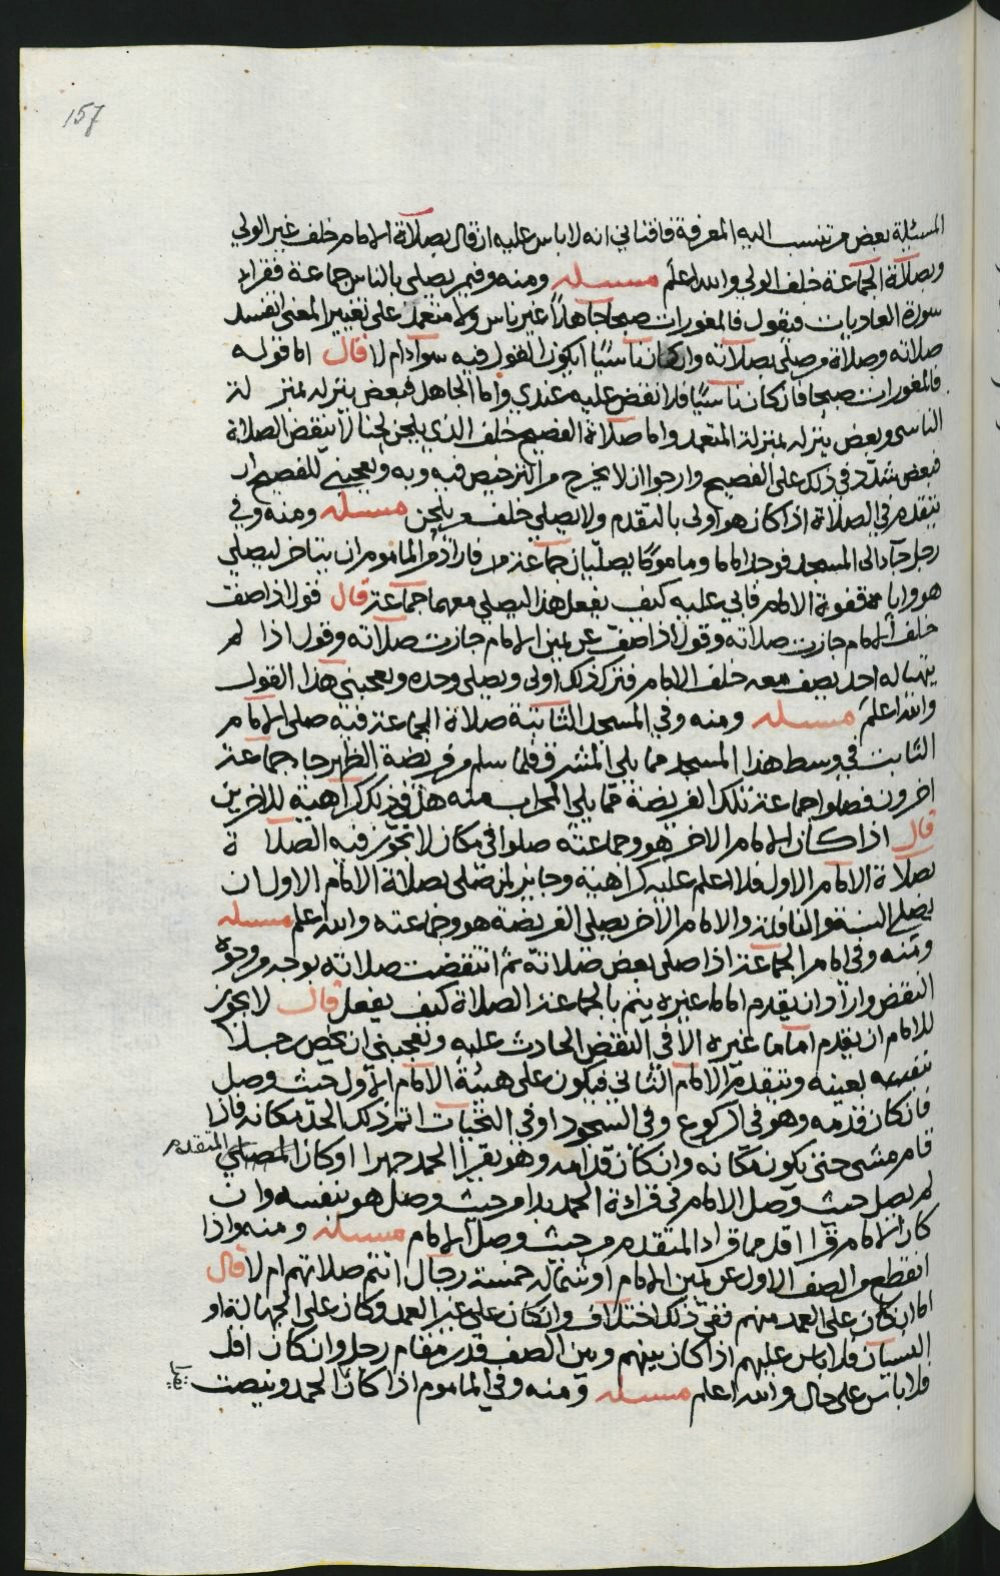 157
المسئلة بعض من تنسب اليه المعرفة فافتاني انه لا باس عليه ان قال بصلاة الامام خلف غير الولي
وبصلاة الجماعة خلف الولي والله اعلم مسئله ومنه وفيمن يصلي بالناس جماعة فقراء
سورة العاديات فيقول فالمغورات صبحا جاهلا غير ناس ولا متعمد على تغيير المعنى اتفسد
صلاته وصلاة من صلى بصلاته وان كان ناسيا ايكون القول فيه سواء ام لا قال اما قوله
فالمغورات صبحا فان كان ناسيا فلا نقض عليه عندي واما الجاهل فبعض ينزله بمنز لة
الناسي وبعض ينزله بمنزلة المتعمد واما صلاة الفصيح خلف الذي يلحن لحنا لا ينقض الصلاة
فبعض شدد في ذلك على الفصيح وارجوا ان لا يخرج من الترخيص فيه وبه ويعجبني للفصيح ان
يتقدم في الصلاة اذا كان هو اولى بالتقدم ولا يصلي خلف من يلحن مسئله ومنه وفي
رجل جاء الى المسجد فوجد اماما وماموما يصليان جماعة فاراد من المامو م ان يتاخر ليصلي
هو واياه قفوة الامام فابى عليه كيف يفعل هذا ليصلي معهما جماعة قال قول اذا صف
خلف الامام جازت صلاته وقول اذا صف عن يمين الامام جازت صلاته وقول اذا لم
يتهيا له احد يصف معه خلف الامام فترك ذلك اولى ويصلي وحده ويعجبني هذا القول
والله اعلم مسئله ومنه وفي المسجد الثابتة صلاة الجماعة فيه صلى الامام
الثابت في وسط هذا المسجد مما يلي المشرق فلما سلم من فريضة الظهر جا جماعة
اخرون فصلوا جماعة تلك الفريضة مما يلي المحراب منه هل في ذلك كراهية للاخرين
قال اذا كان الامام الاخر هو وجماعته صلوا في مكان لا تجوز فيه الصلا ة
بصلاة الامام الاول فلا اعلم عليه كراهية وجايز لمن صلى بصلاة الامام الاول ان
يصلي السنة والنافلة والامام الاخر يصلي الفريضة هو وجماعته والله اعلم مسئله
ومنه وفي امام الجماعة اذا صلى بعض صلاته ثم انتقضت صلاته بوجه من وجوه
النقض واراد ان يقدم اماما غيره يتم بالجماعة الصلاة كيف يفعل قال لا يجوز
للامام ان يقدم اماما غيره الا في النقض الحادث عليه ويعجبني ان يخص رجلا
بنفسه بعينه ويتقدم الامام الثاني فيكون على هيئة الامام الاول حيث وصل
فان كان قدمه وهو في الركوع وفي السجود او في التحيات اتم ذلك الحد مكانه فاذا
قام مشى حتى يكون مكانه وان كان قدامه وهو يقرا الحمد جهرا او كان المصلي المتقدم
لم يصل حيث وصل الامام في قراءة الحمد بدا من حيث وصل هو بنفسه وان
كان الامام قرا اقل مما قراء المتقدم من حيث وصل الامام مسئله ومنه واذا
انقطع من الصف الاول عن يمين الامام او شماله خمسة رجال اتتم صلاتهم ام لا قال
اما ان كان على العمد منهم ففي ذلك اختلاف وان كان على غير العمد وكان على الجهالة او
النسيان فلا باس عليهم اذا كان بينهم وبين الصف قدر مقام رجل وان كان اقل
فلا باس على حال والله اعلم مسئله ومنه وفي الماموم اذا كان الحمد وينصت